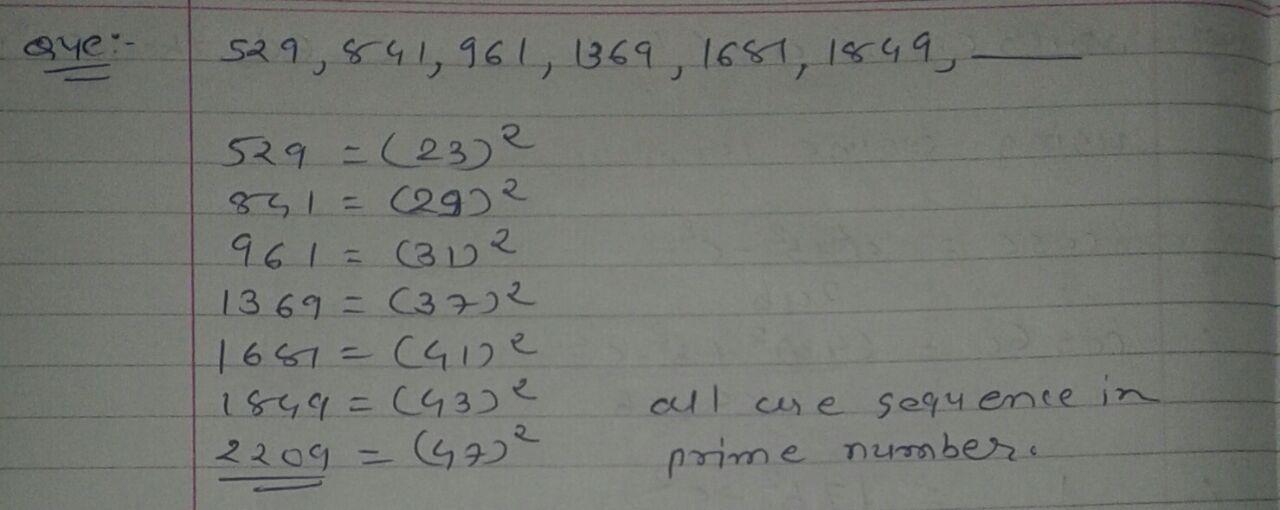 Que:- 529, 841, 961, 1369, 1681, 1849, ___
529 = (23)²
841 = (29)²
961 = (31)²
1369 = (37)²
1681 = (41)²
1849 = (43)² all are sequence in
2209 = (47)² prime number.